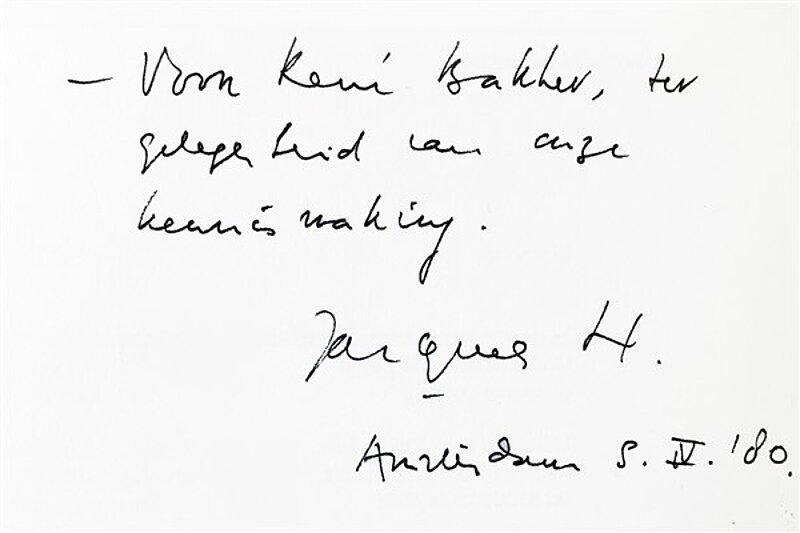 — Voor René Bakker, ter
gelegenheid van onze
kennismaking.
Jacques H.
Amsterdam 5. IV. '80.